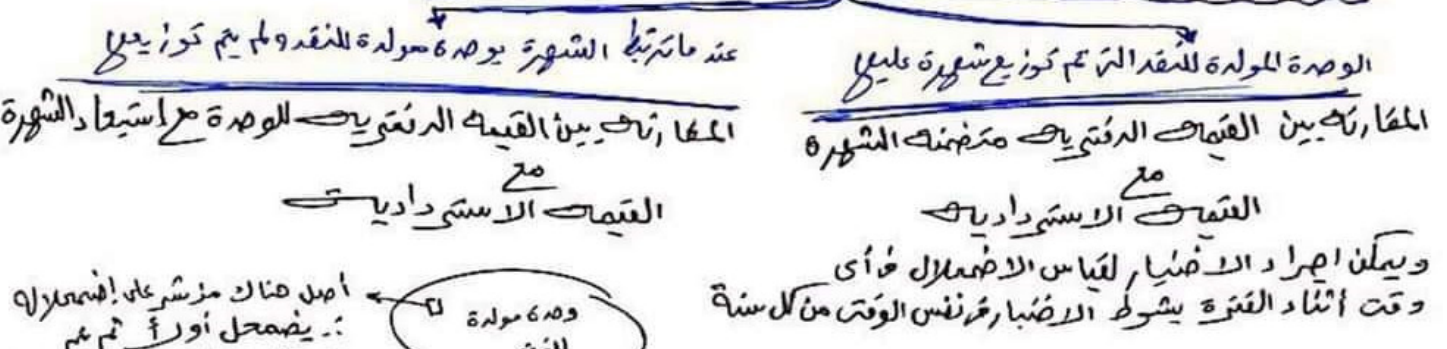 الوحدة المولدة للنقد التى تم توزيع شهرة عليها
المقارنة بين القيمة الدفترية متضمنه الشهرة
مع
القيمة الاستردادية
ويمكن اجراء الاختبار لقياس الاضمحلال فى أى
وقت أثناء الفترة بشرط الاختبار فى نفس الوقت من كل سنة
عند ما ترتبط الشهرة بوحدة مولدة للنقد ولم يتم توزيعها
المقارنة بين القيمة الدفترية للوحدة مع استبعاد الشهرة
مع
القيمة الاستردادية
وحدة مولدة
أصل هناك مؤشر على إضمحلاله
∴ يضمحل أولاً ثم يتم